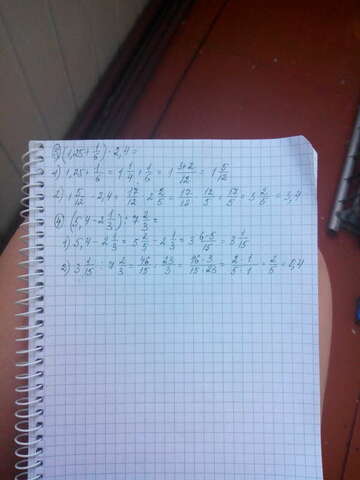 3) (1,25 + 1/6) · 2,4 =
1) 1,25 + 1/6 = 1 1/4 + 1/6 = 1 3+2/12 = 1 5/12
2) 1 5/12 · 2,4 = 17/12 · 2 2/5 = 17/12 · 12/5 = 17/5 = 3 2/5 = 3,4
4) (5,4 - 2 1/3) : 7 2/3 =
1) 5,4 - 2 1/3 = 5 2/5 - 2 1/3 = 3 6-5/15 = 3 1/15
2) 3 1/15 : 7 2/3 = 46/15 : 23/3 = 46·3/15·23 = 2·1/5·1 = 2/5 = 0,4